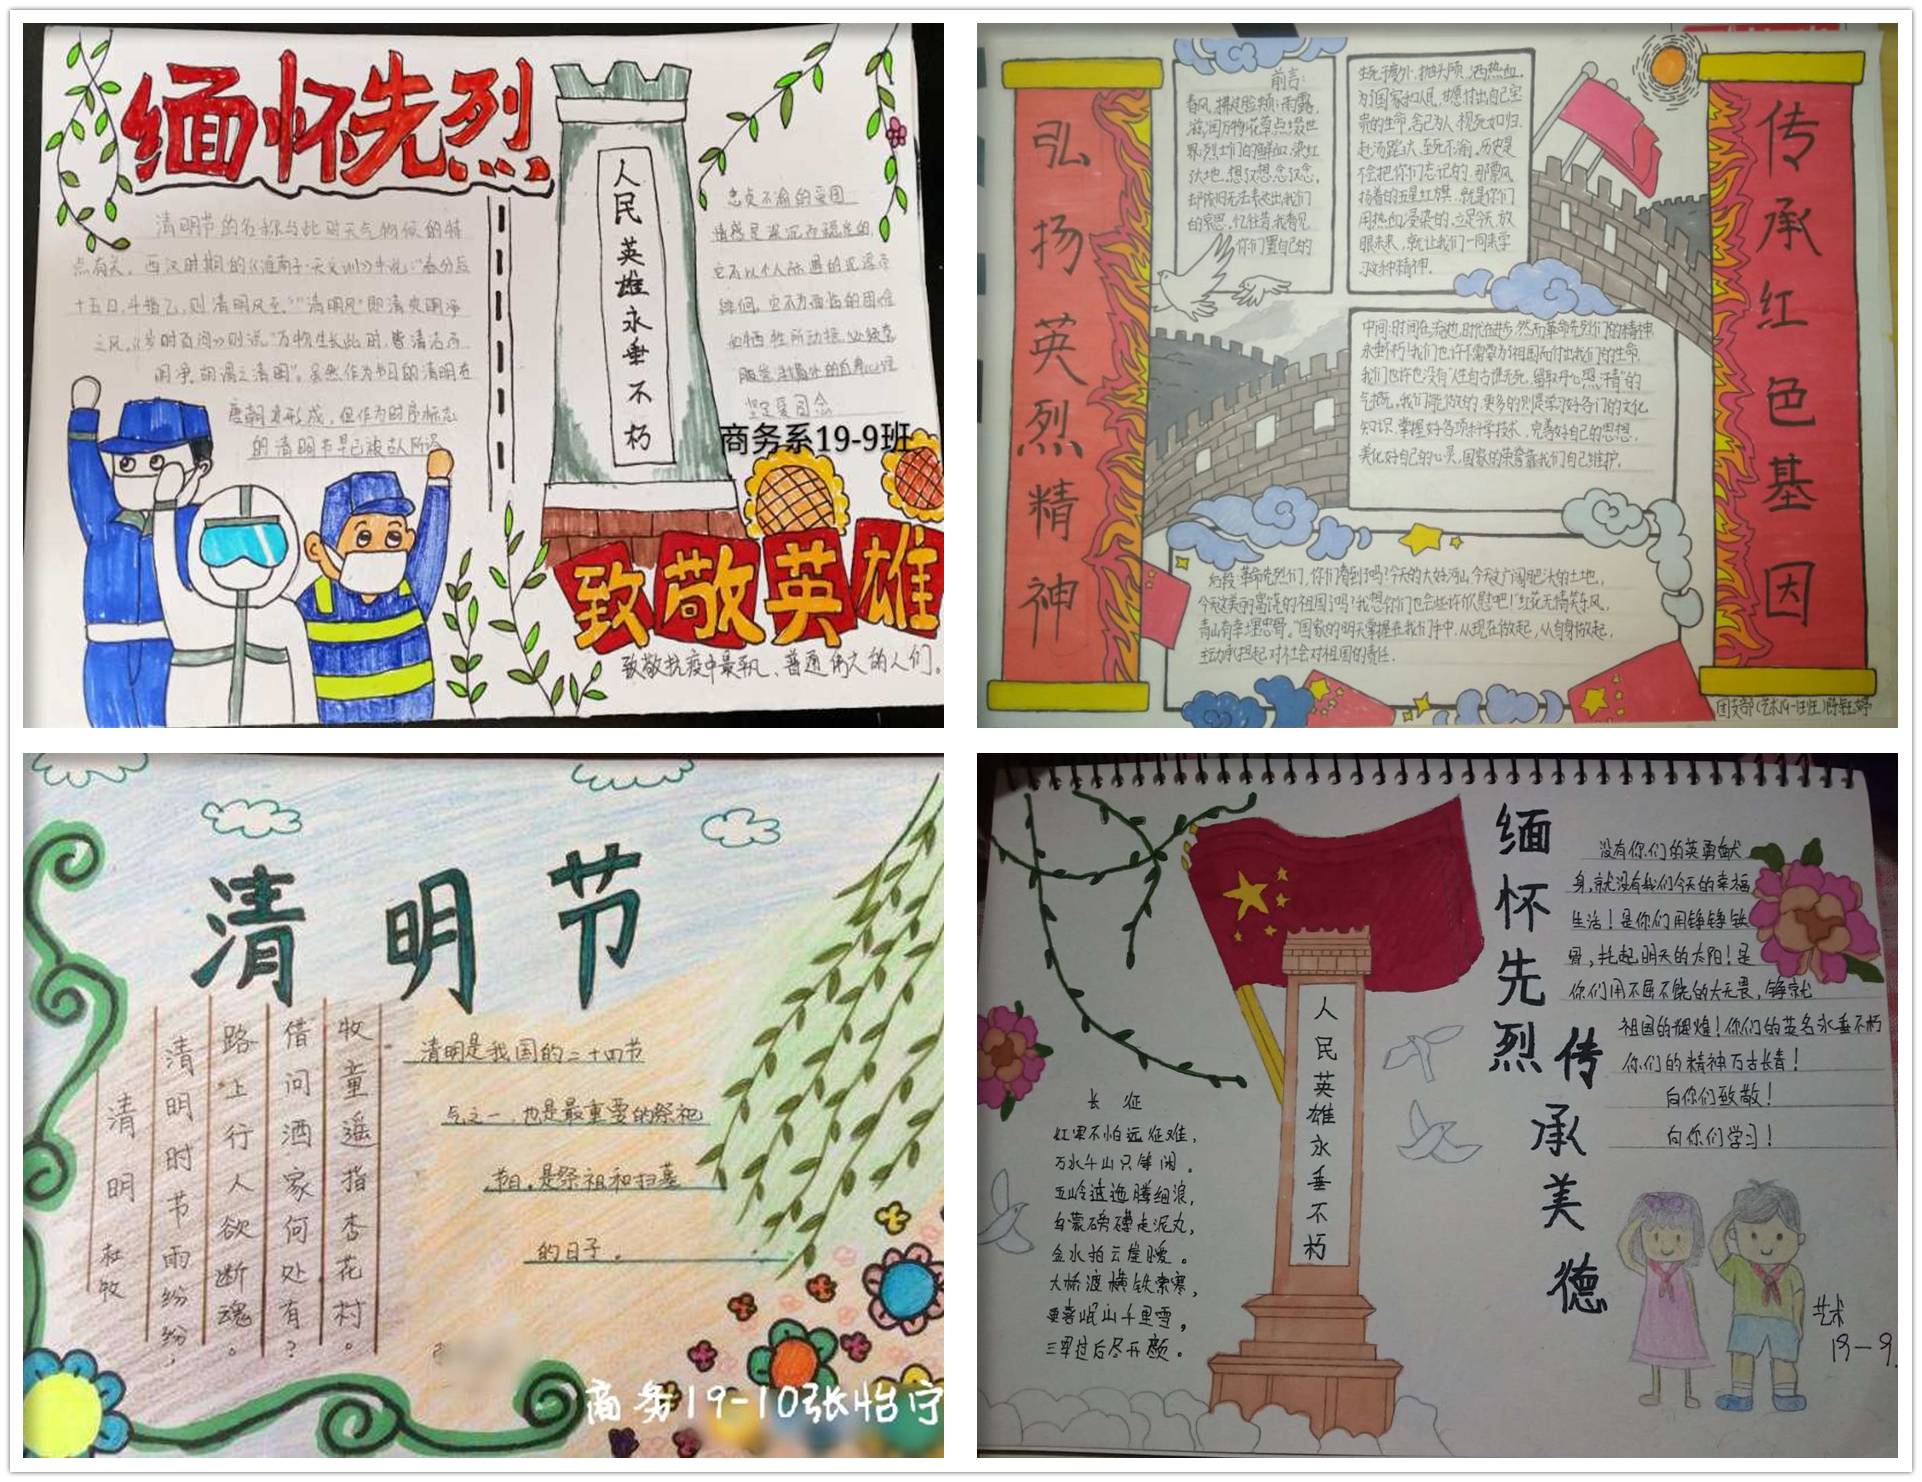 缅怀先烈
清明节的名称与此时天气物候的特
点有关。西汉时期的《淮南子·天文训》中说:"春分后
十五日,斗指乙,则清明风至。""清明风"即清爽明净
之风。《岁时百问》则说"万物生长此时,皆清洁而
明净。故谓之清明"。虽然作为节日的清明在
唐朝才形成,但作为时序标志
的清明节早已被古人所
人民英雄永垂不朽
忠贞不渝的爱国
情感是深沉而稳定的,
它不以个人际遇的沉浮而
坚定爱国念
商务系19-9班
致敬英雄
致敬抗疫中最平凡、普通伟大的人们。
弘扬英烈精神
前言:
春风,拂过脸颊;雨露,
滋润万物;花草点缀世
界;烈士们的鲜血,染红
大地。想汉想念汉念,
却依旧无法表达出我们
的哀思。忆往昔,我看见
你们置自己的
生死于度外,抛头颅,洒热血。
为了国家和人民,甘愿付出自己宝
贵的生命,舍己为人,视死如归,
赴汤蹈火,至死不渝。历史是
不会把你们忘记的,那飘
扬着的五星红旗,就是你们
用热血浸染的,立足今天,放
眼未来,就让我们一同来学
习这种精神。
中间:时间在流逝,时代在进步,然而革命先烈们的精神
永垂不朽!我们也许不需要为了祖国而付出我们的生命,
我们也许也没有"人生自古谁无死,留取丹心照汗青"的
气概。我们能做的,更多的则是学习好各门的文化
知识,掌握好各项科学技术,完善好自己的思想,
美化好自己的心灵,国家的荣誉靠我们自己维护。
后段:革命先烈们,你们看到了吗?今天的大好河山,今天这广阔肥沃的土地,
今天这美丽富饶的祖国了吗?我想你们也会些许欣慰吧!"红花无情笑东风,
青山有幸埋忠骨。"国家的明天掌握在我们手中,从现在做起,从自身做起,
主动承担起对社会对祖国的责任。
传承红色基因
清明节
清明 杜牧
清明时节雨纷纷,
路上行人欲断魂。
借问酒家何处有?
牧童遥指杏花村。
清明是我国的二十四节
气之一,也是最重要的祭祀
节日。是祭祖和扫墓
的日子。
商务19-10张怡宁
长 征
红军不怕远征难,
万水千山只等闲。
五岭逶迤腾细浪,
乌蒙磅礴走泥丸,
金水拍云崖暖。
大桥渡横铁索寒,
更喜岷山千里雪,
三军过后尽开颜。
人民英雄永垂不朽
缅怀先烈
传承美德
没有你们的英勇献
身,就没有我们今天的幸福
生活!是你们用铮铮铁
骨,托起明天的太阳!是
你们用不屈不饶的大无畏,铸就
祖国的辉煌!你们的英名永垂不朽
你们的精神万古长青!
向你们致敬!
向你们学习!
艺术
19-9